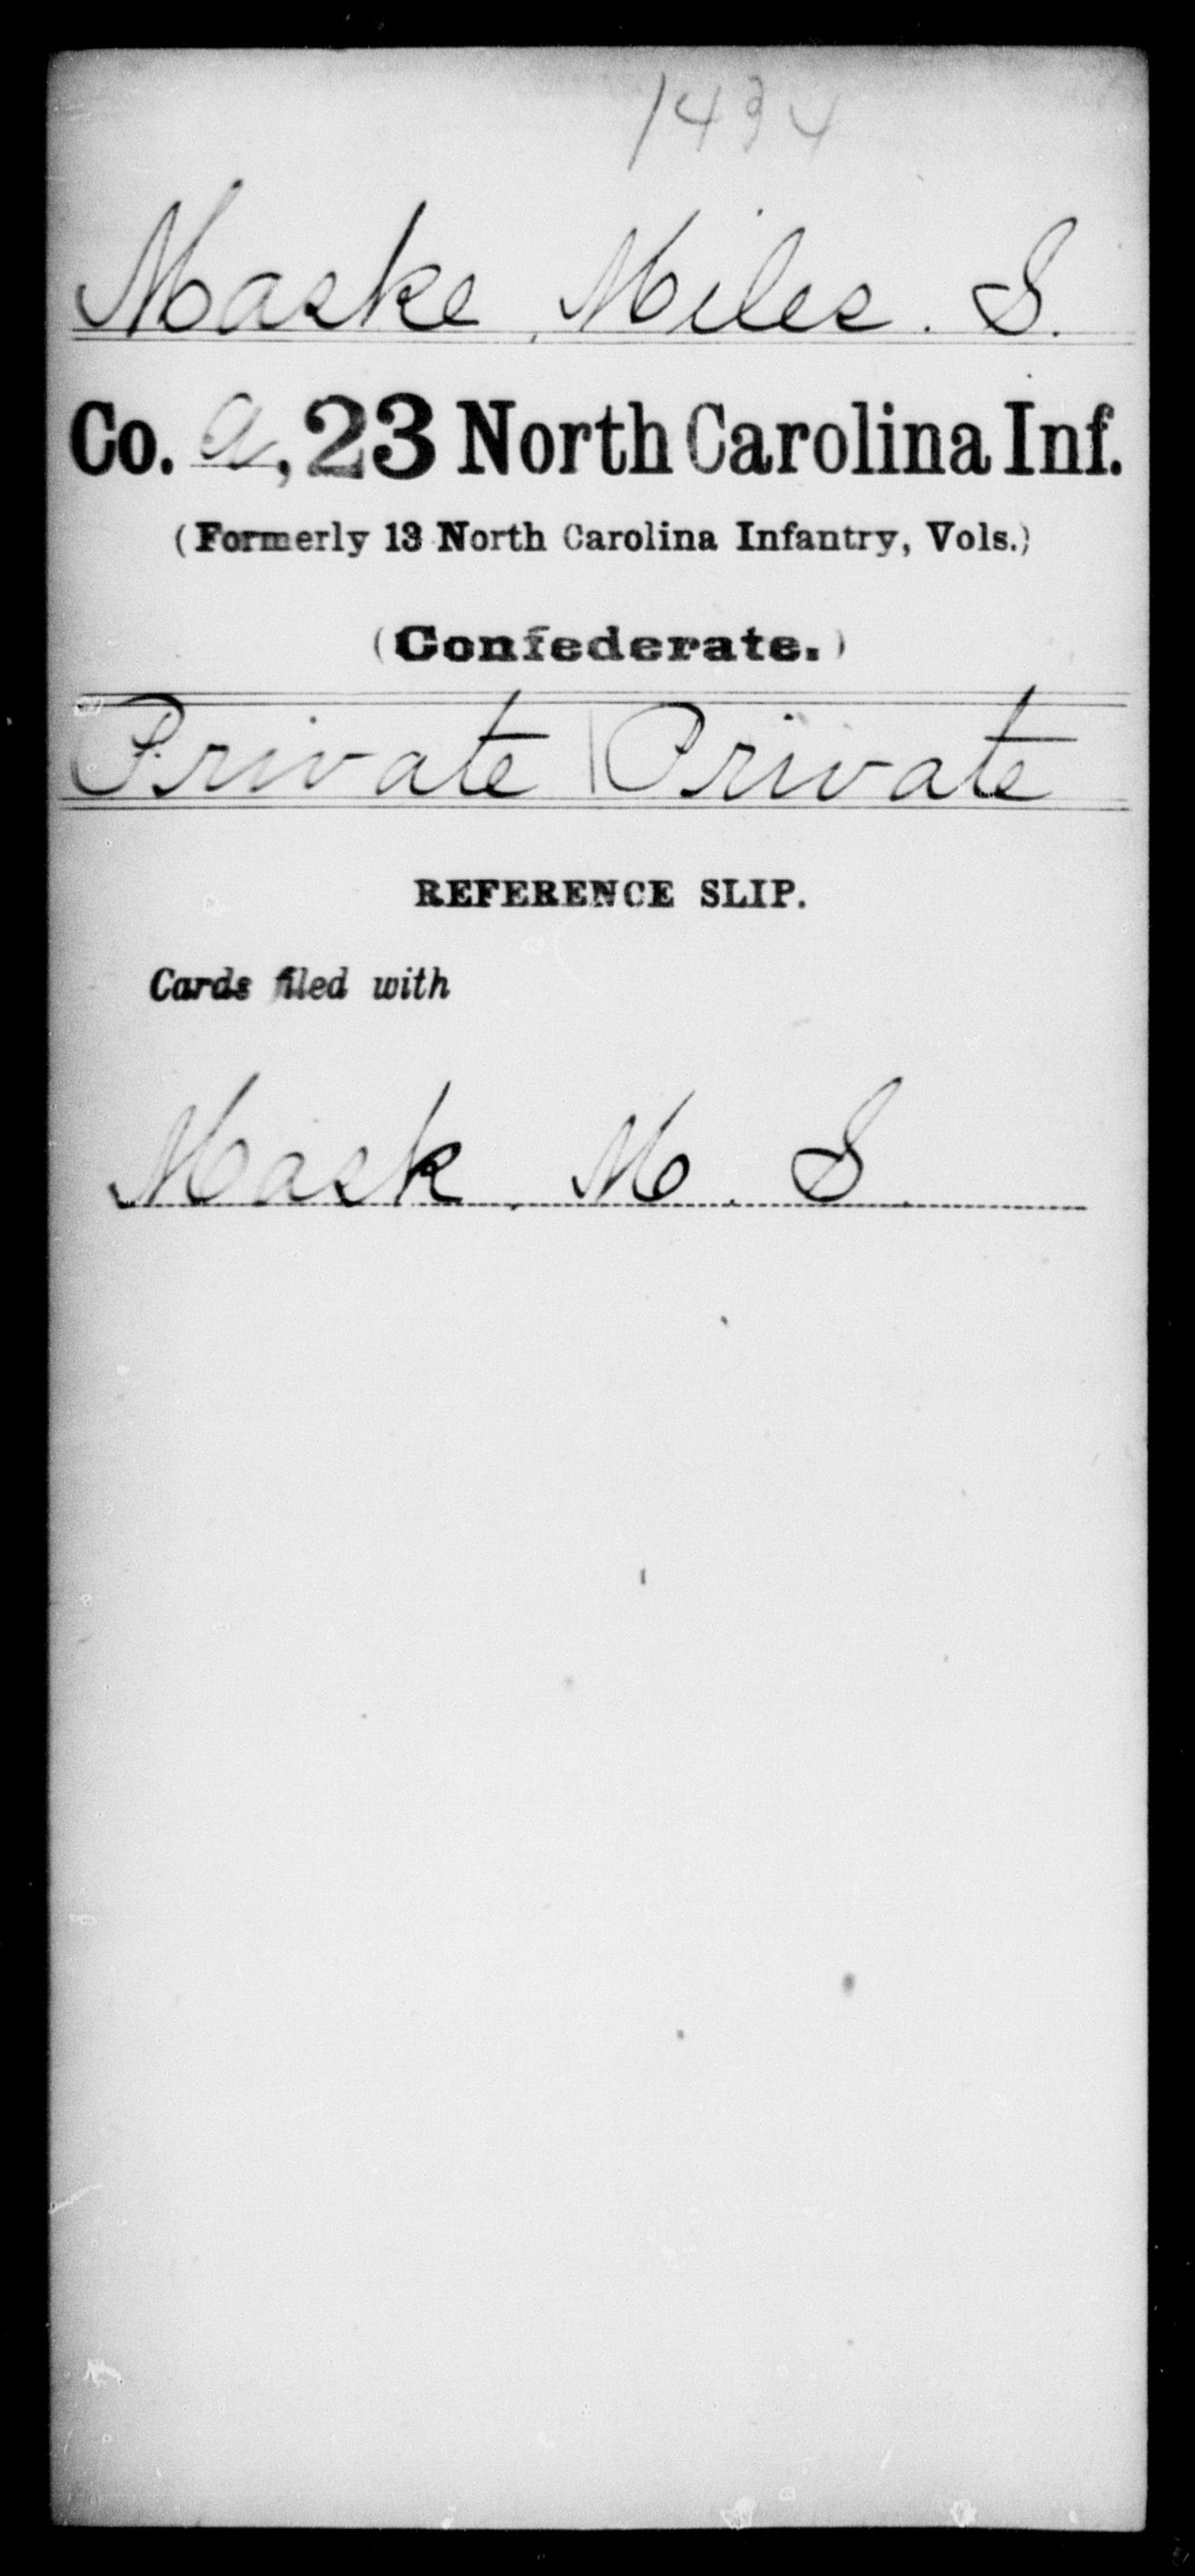 1434
Maske, Miles. S.
Co. A, 23 North Carolina Inf.
(Formerly 13 North Carolina Infantry, Vols.)
(Confederate.)
Private | Private
REFERENCE SLIP.
Cards filed with
Mask, M. S.